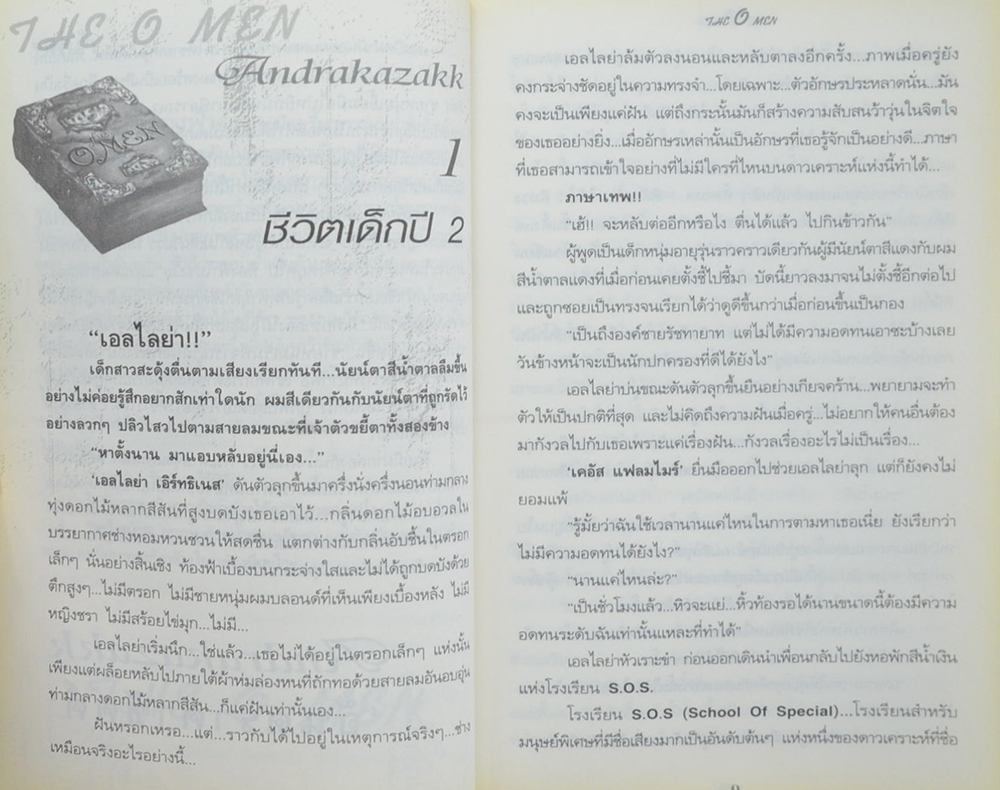 THE O MEN
Andrakazakk
OMEN
1
ชีวิตเด็กปี 2
“เอลไลย่า!!”
เด็กสาวสะดุ้งตื่นตามเสียงเรียกทันที...นัยน์ตาสีน้ำตาลลืมขึ้น
อย่างไม่ค่อยรู้สึกอยากสักเท่าใดนัก ผมสีเดียวกันกับนัยน์ตาที่ถูกรัดไว้
อย่างลวกๆ ปลิวไสวไปตามสายลมขณะที่เจ้าตัวขยี้ตาทั้งสองข้าง
“หาตั้งนาน มาแอบหลับอยู่นี่เอง...”
‘เอลไลย่า เอิร์ทธิเนส’ ดันตัวลุกขึ้นมาครึ่งนั่งครึ่งนอนท่ามกลาง
ทุ่งดอกไม้หลากสีสันที่สูงบดบังเธอเอาไว้...กลิ่นดอกไม้อบอวลใน
บรรยากาศช่างหอมหวนชวนให้สดชื่น แตกต่างกับกลิ่นอับชื้นในตรอก
เล็กๆ นั่นอย่างสิ้นเชิง ท้องฟ้าเบื้องบนกระจ่างใสและไม่ได้ถูกบดบังด้วย
ตึกสูงๆ...ไม่มีตรอก ไม่มีชายหนุ่มผมบลอนด์ที่เห็นเพียงเบื้องหลัง ไม่มี
หญิงชรา ไม่มีสร้อยไข่มุก...ไม่มี...
เอลไลย่าเริ่มนึก...ใช่แล้ว...เธอไม่ได้อยู่ในตรอกเล็กๆ แห่งนั้น
เพียงแต่ผล็อยหลับไปภายใต้ผ้าห่มล่องหนที่ถักทอด้วยสายลมอันอบอุ่น
ท่ามกลางดอกไม้หลากสีสัน...ก็แค่ฝันเท่านั้นเอง...
ฝันหรอกเหรอ...แต่...ราวกับได้ไปอยู่ในเหตุการณ์จริงๆ...ช่าง
เหมือนจริงอะไรอย่างนี้...
THE O MEN
เอลไลย่าล้มตัวลงนอนและหลับตาลงอีกครั้ง...ภาพเมื่อครู่ยัง
คงกระจ่างชัดอยู่ในความทรงจำ...โดยเฉพาะ...ตัวอักษรประหลาดนั่น...มัน
คงจะเป็นเพียงแค่ฝัน แต่ถึงกระนั้นมันก็สร้างความสับสนว้าวุ่นในจิตใจ
ของเธออย่างยิ่ง...เมื่ออักษรเหล่านั้นเป็นอักษรที่เธอรู้จักเป็นอย่างดี...ภาษา
ที่เธอสามารถเข้าใจอย่างที่ไม่มีใครที่ไหนบนดาวเคราะห์แห่งนี้ทำได้...
ภาษาเทพ!!
“เฮ้!! จะหลับต่ออีกหรือไง ตื่นได้แล้ว ไปกินข้าวกัน”
ผู้พูดเป็นเด็กหนุ่มอายุรุ่นราวคราวเดียวกันผู้มีนัยน์ตาสีแดงกับผม
สีน้ำตาลแดงที่เมื่อก่อนเคยตั้งชี้ไปชี้มา บัดนี้ยาวลงมาจนไม่ตั้งชี้อีกต่อไป
และถูกซอยเป็นทรงจนเรียกได้ว่าดูดีขึ้นกว่าเมื่อก่อนขึ้นเป็นกอง
“เป็นถึงองค์ชายรัชทายาท แต่ไม่ได้มีความอดทนเอาซะบ้างเลย
วันข้างหน้าจะเป็นนักปกครองที่ดีได้ยังไง”
เอลไลย่าบ่นขณะดันตัวลุกขึ้นยืนอย่างเกียจคร้าน...พยายามจะทำ
ตัวให้เป็นปกติที่สุด และไม่คิดถึงความฝันเมื่อครู่...ไม่อยากให้คนอื่นต้อง
มากังวลไปกับเธอเพราะแค่เรื่องฝัน...กังวลเรื่องอะไรไม่เป็นเรื่อง...
‘เคอัส แฟลมไมร์’ ยื่นมือออกไปช่วยเอลไลย่าลุก แต่ก็ยังคงไม่
ยอมแพ้
“รู้มั้ยว่าฉันใช้เวลานานแค่ไหนในการตามหาเธอเนี่ย ยังเรียกว่า
ไม่มีความอดทนได้ยังไง?”
“นานแค่ไหนล่ะ?”
“เป็นชั่วโมงแล้ว...หิวจะแย่...หิ้วท้องรอได้นานขนาดนี้ต้องมีความ
อดทนระดับฉันเท่านั้นแหละที่ทำได้”
เอลไลย่าหัวเราะขำ ก่อนออกเดินนำเพื่อนกลับไปยังหอพักสีน้ำเงิน
แห่งโรงเรียน S.O.S.
โรงเรียน S.O.S (School Of Special)...โรงเรียนสำหรับ
มนุษย์พิเศษที่มีชื่อเสียงมากเป็นอันดับต้นๆ แห่งหนึ่งของดาวเคราะห์ที่ชื่อ